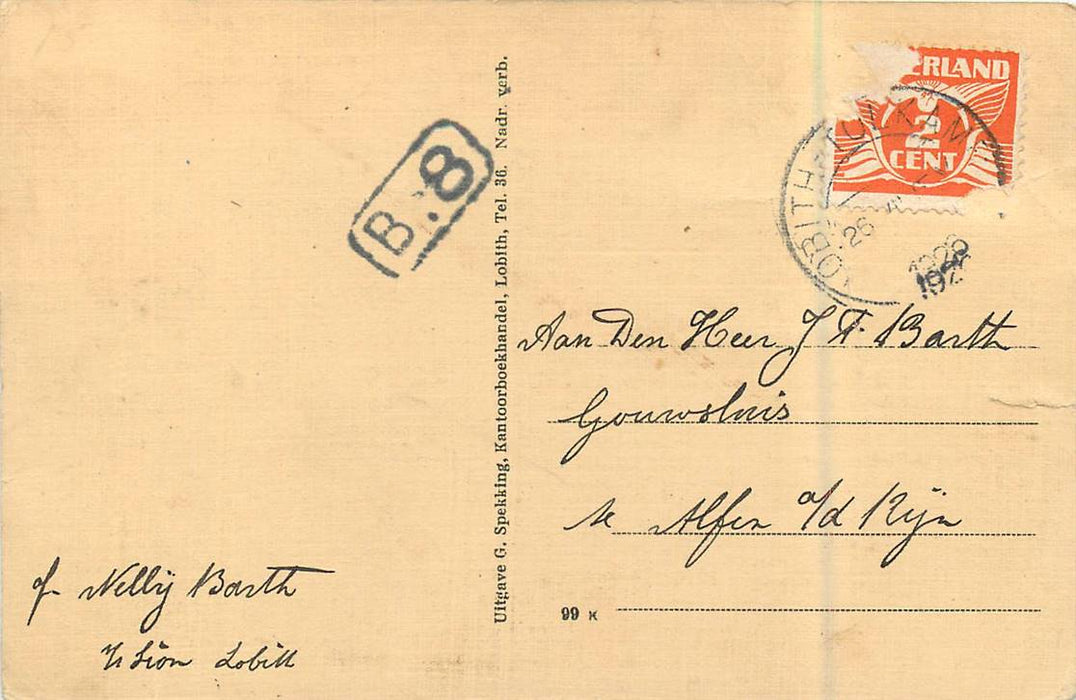 ERLAND
2
CENT
LOBITH-TOLKAMER
26
1926
B.8
Aan Den Heer J F. Barth
Gouwsluis
te Alfen a/d Rijn
99 K
Uitgave G. Spekking, Kantoorboekhandel, Lobith, Tel. 36. Nadr. verb.
Nelly Barth
Lobith